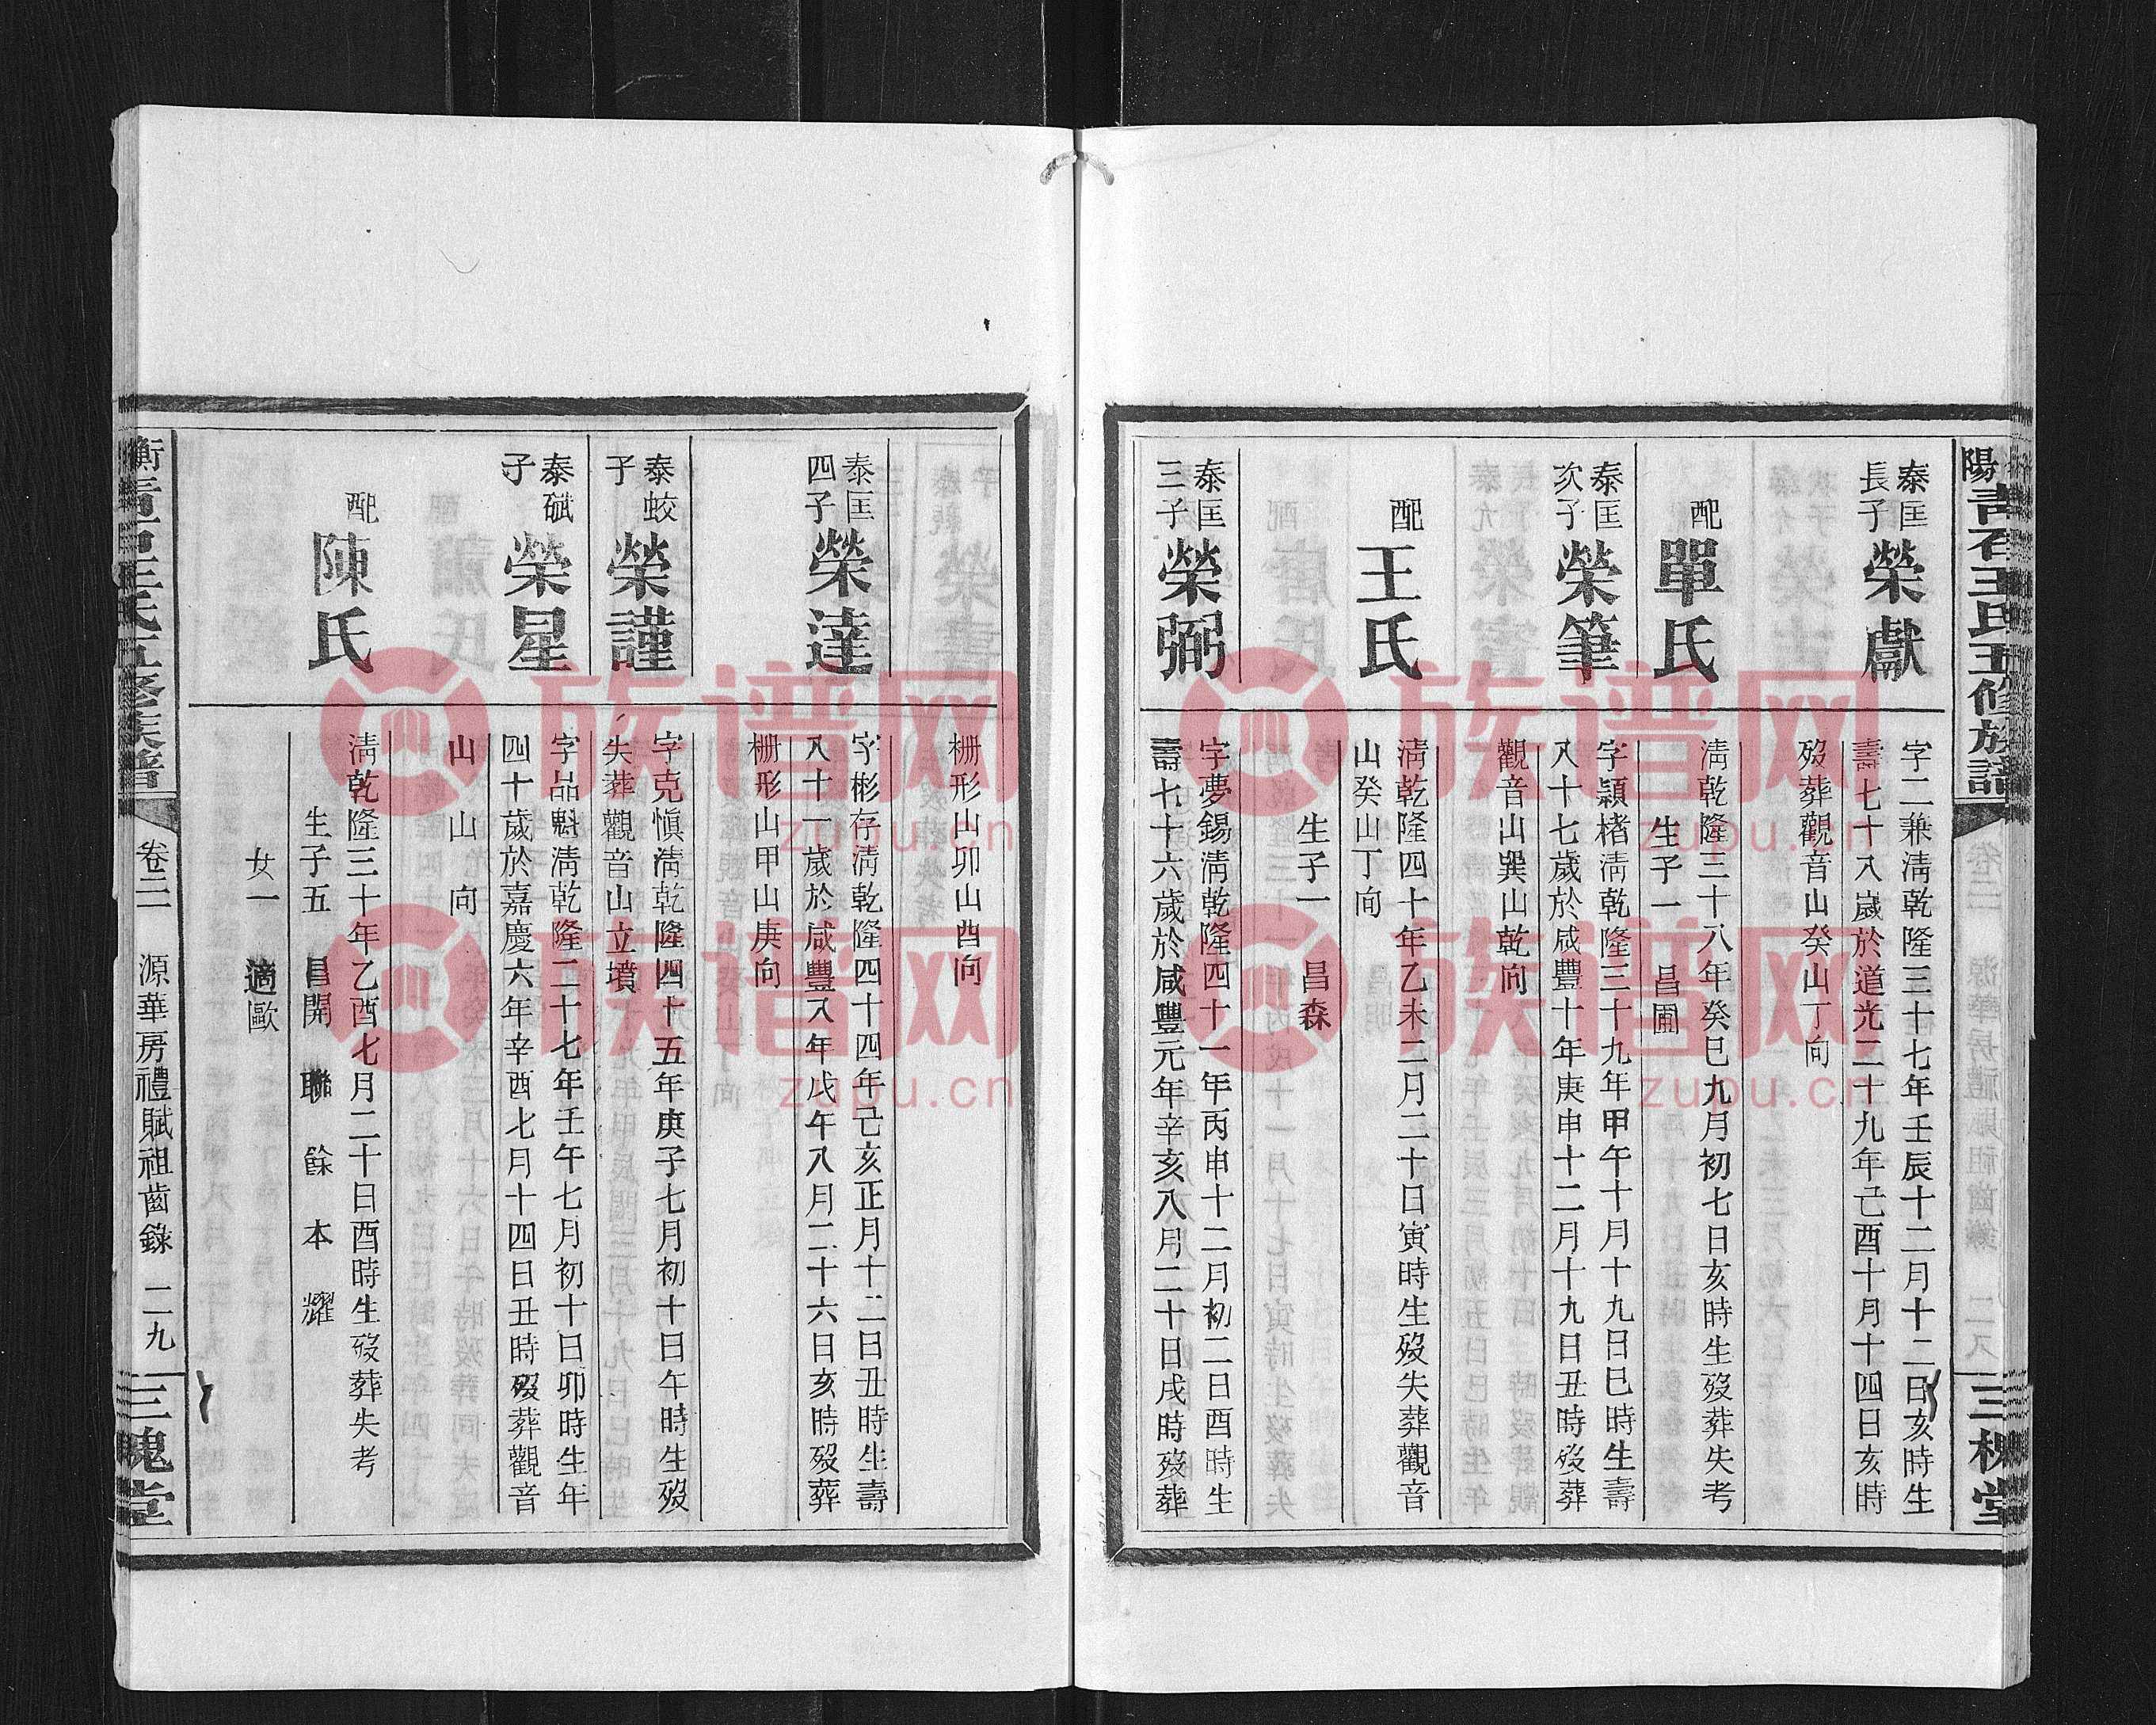 陽青石王氏五修族譜
三槐堂
泰匡長子榮獻
字二兼淸乾隆三十七年壬辰十二月十二日亥時生
壽七十八歲於道光二十九年己酉十月十四日亥時
歿葬觀音山癸山丁向
配單氏
淸乾隆三十八年癸巳九月初七日亥時生歿葬失考
生子一 昌圃
泰匡次子榮筆
字穎楮淸乾隆三十九年甲午十月十九日巳時生壽
八十七歲於咸豐十年庚申十二月十九日丑時歿葬
觀音山巽山乾向
配王氏
淸乾隆四十年乙未二月二十日寅時生歿失葬觀音
山癸山丁向
生子一 昌森
泰匡三子榮弼
字夢錫淸乾隆四十一年丙申十二月初二日酉時生
壽七十六歲於咸豐元年辛亥八月二十日戌時歿葬
栅形山卯山酉向
泰匡四子榮達
字彬存淸乾隆四十四年己亥正月十二日丑時生壽
八十一歲於咸豐八年戊午八月二十六日亥時歿葬
栅形山甲山庚向
泰蛟子榮謹
字克愼淸乾隆四十五年庚子七月初十日午時生歿
失葬觀音山立墳
泰碔子榮星
字品魁淸乾隆二十七年壬午七月初十日卯時生年
四十歲於嘉慶六年辛酉七月十四日丑時歿葬觀音
山 山 向
配陳氏
淸乾隆三十年乙酉七月二十日酉時生歿葬失考
生子五 昌開 聯 餘 本 耀
女一 適歐
衡青石王氏五修族譜
卷二 源華房禮賦祖齒錄 二九
三槐堂
族谱网
zupu.cn
族谱网
zupu.cn
族谱网
zupu.cn
族谱网
zupu.cn